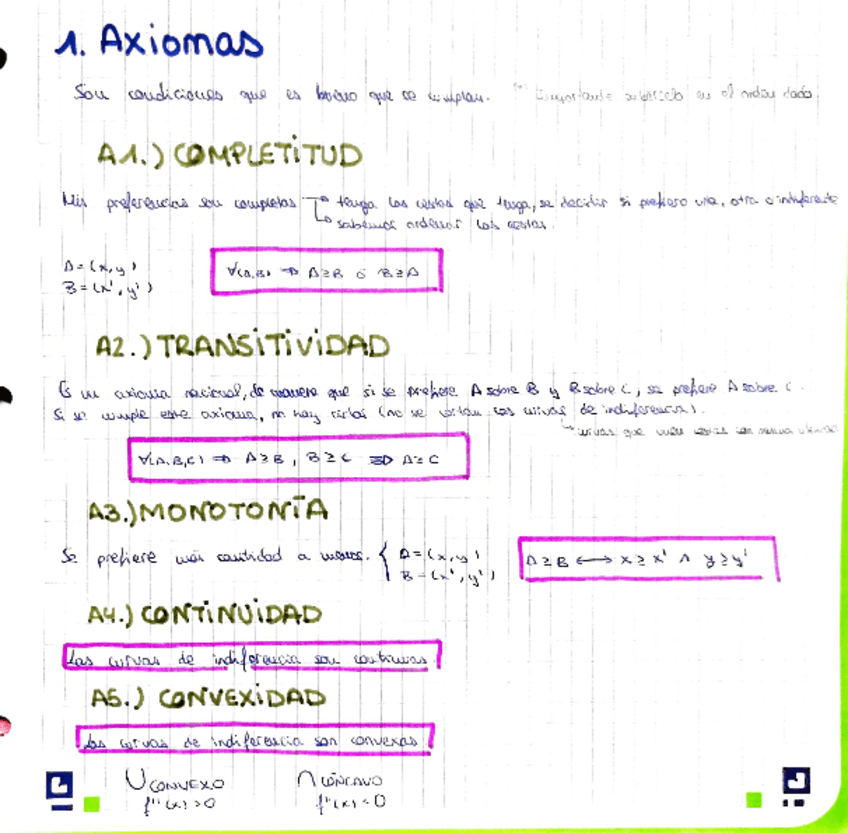 1. Axiomas
Son condiciones que es bueno que se cumplan. (* Importante saberselo en el orden dado
A1.) COMPLETITUD
Mis preferencias son completas → tenga las cestas que tenga, se decidir si prefiero una, otra o indiferente
↳ sabemos ordenar las cestas.
A = (x, y)
B = (x', y')
∀(A,B) ⇒ A ≥ B ó B ≥ A
A2.) TRANSITIVIDAD
Es un axioma racional, de manera que si se prefiere A sobre B y B sobre C, se prefiere A sobre C.
Si se cumple este axioma, no hay ciclos (no se cortan las curvas de indiferencia).
↳ curvas que unen cestas con misma utilidad
∀(A,B,C) ⇒ A ≥ B, B ≥ C ⇒ A ≥ C
A3.) MONOTONÍA
Se prefiere más cantidad a menos. { A = (x, y)
B = (x', y')
A ≥ B ⟷ x ≥ x' ∧ y ≥ y'
A4.) CONTINUIDAD
Las curvas de indiferencia son continuas.
A5.) CONVEXIDAD
Las curvas de indiferencia son convexas
∪ CONVEXO
f''(x) > 0
∩ CÓNCAVO
f''(x) < 0